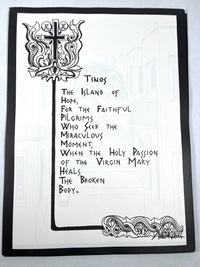 Tinos
The Island of
Hope,
For the Faithful
Pilgrims
Who Seek the
Miraculous
Moment,
When the Holy Passion
of the Virgin Mary
Heals
The Broken
Body.